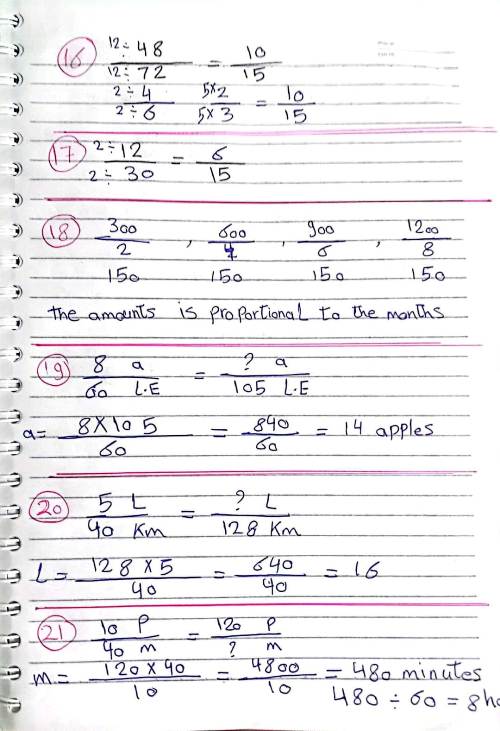 16 12÷48/12÷72 = 10/15
2÷4/2÷6 5×2/5×3 = 10/15
17 2÷12/2÷30 = 6/15
18 300/2 , 600/4 , 900/6 , 1200/8
150 150 150 150
the amounts is proportional to the months
19 8 a/60 L.E = ? a/105 L.E
a= 8×105/60 = 840/60 = 14 apples
20 5 L/40 Km = ? L/128 Km
L = 128×5/40 = 640/40 = 16
21 10 P/40 m = 120 P/? m
m= 120×40/10 = 4800/10 = 480 minutes
480 ÷ 60 = 8ho